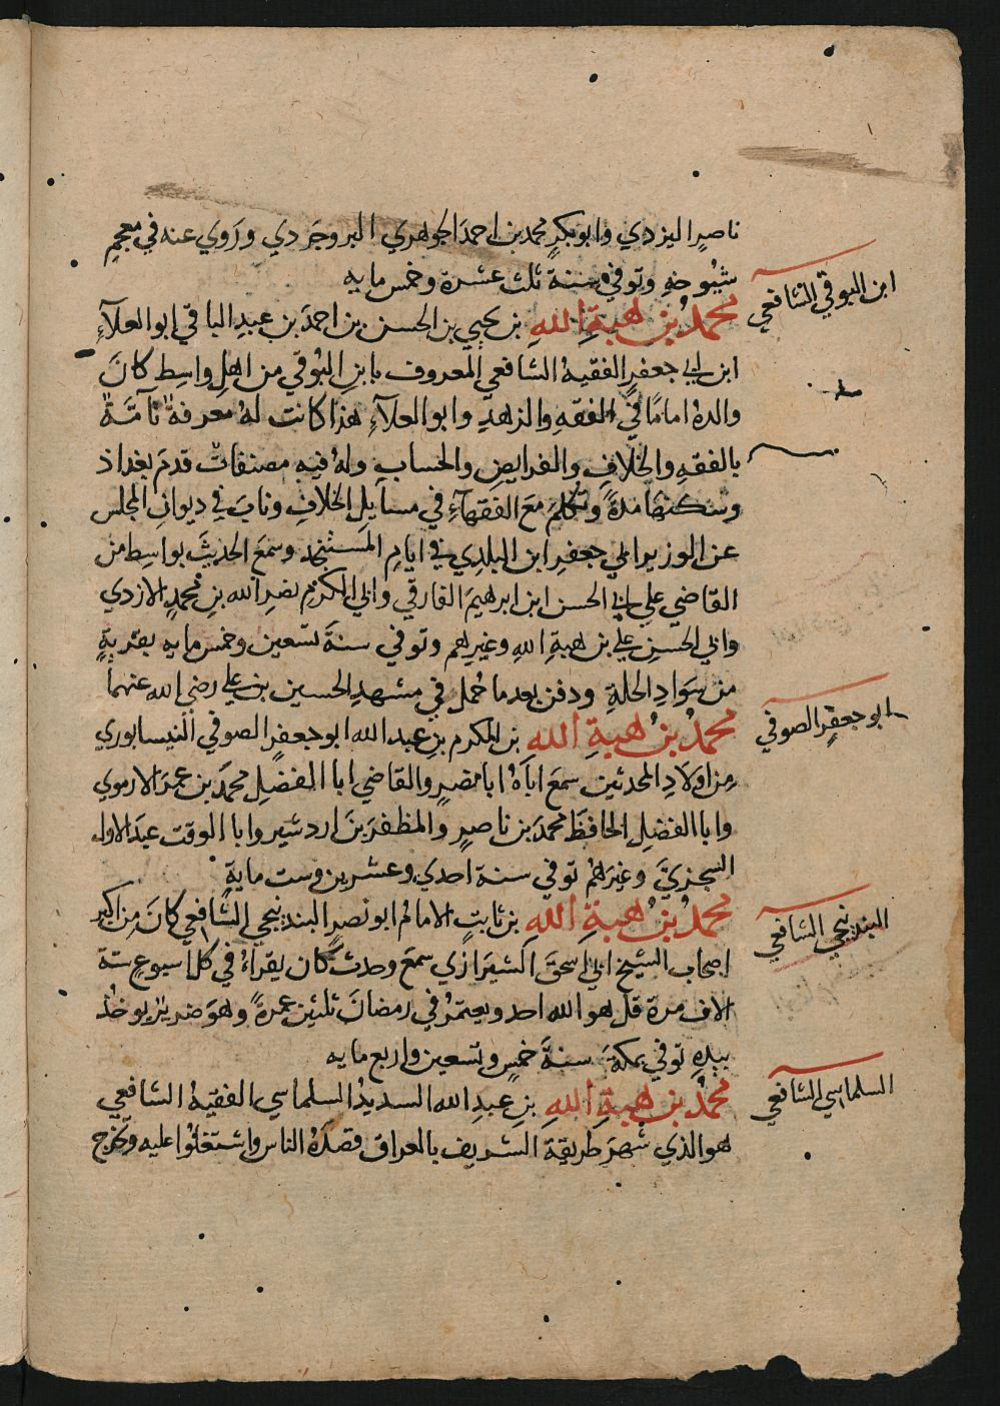 ناصرٍ اليزدي وابو بكرٍ محمد بن احمدَ الجوهري البروجردي وروي عنه في معجم
شيوخهِ وتوفي سنة ثلث عشرة وخمس مايه
ابن البوقي الشافعي
محمدُ بن هبةِ اللهِ بن يحيي بن الحسن بن احمدَ بن عبدِ الباقي ابو العلآءِ
ابن ابي جعفرٍ الفقيهُ الشافعي المعروف بابنِ البُوقي من اهلِ واسِط كانَ
والدهُ امامًا في الفقهِ والزهدِ وابو العلآءِ هذا كانت لهُ معرفةٌ تآمّةٌ
بالفقهِ والخلافِ والفرايضِ والحسابِ ولهُ فيهِ مصنفاتٌ قدمَ بغداذ
وسكنها مدةً وتكلمَ معَ الفقهآءِ في مسايلِ الخلافِ ونابَ في ديوانِ المجلس
عن الوزير ابي جعفرِ ابن البلدِي في ايامِ المستنجد وسمعَ الحديثَ بواسِط من
القاضي علي ابي الحسن ابن ابرهيمَ الفارقي وابي الكرم نصرِ الله بنِ محمدٍ الازدي
وابي الحسنِ علي بن هبةِ اللهِ وغيرهم وتوفي سنةَ تسعين وخمس مايه بقريةٍ
من سَوَادِ الحلةِ ودفن بعد ما حُمل في مشهدِ الحسين بن علي رضي الله عنهما
ابو جعفرٍ الصوفي
محمدُ بنُ هبةِ اللهِ بن المكرم بنِ عبد الله ابو جعفرٍ الصوفي النيسابوري
من اولادِ المحدثين سمعَ اباهُ ابا نصرٍ والقاضي ابا الفضلِ محمدَ بن عمرَ الارموي
وابا الفضلِ الحافظَ محمدَ بن ناصرٍ والمظفرَ بنَ اردشير وابا الوقت عبدَ الاول
السجزيَّ وغيرهُم توفي سنة احدي وعشرين وست مايةٍ
البندنيجي الشافعي
محمدُ بنُ هبةِ اللهِ بن ثابتٍ الامام ابو نصرٍ البندنيجي الشافعي كانَ من اكبر
اصحاب الشيخ ابي اسحقَ الشيرازي سمعَ وحدث كان يقراءُ في كل اسبوعٍ ستة
الاف مرة قل هو الله احد ويعتمرُ في رمضانَ ثلثينَ عمرةً وهوَ ضريرٌ يوخذُ
بيدهِ توفي بمكة سنةَ خمسٍ وتسعين واربع مايه
السلماسي الشافعي
محمدُ بن هبةِ اللهِ بنِ عبدِ الله السديدُ السلماسي الفقيهُ الشافعي
هو الذي شهرَ طريقة الشريف بالعراق فقصدهُ الناس واشتغلوا عليه وتخرج